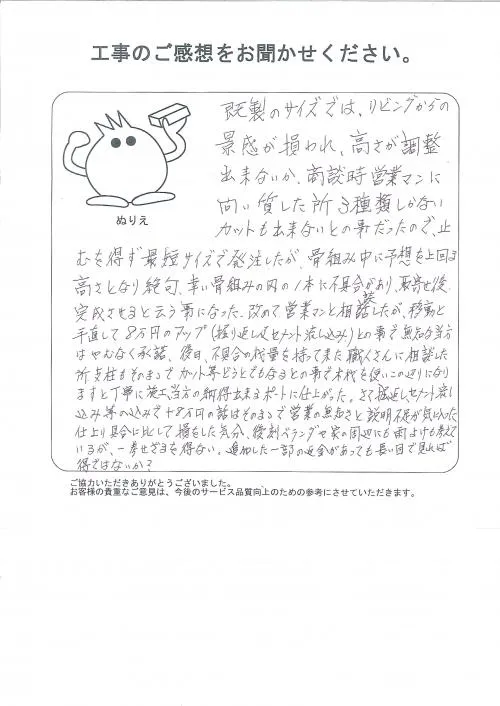 工事のご感想をお聞かせください。
既製のサイズでは、リビングからの
景感が損われ、高さが調整
出来ないか、商談時営業マンに
問い質した所3種類しかない
カットも出来ないとの事だったので、止
ぬりえ
むを得ず最短サイズで発注したが、骨組み中に予想を上回る
高さとなり絶句、幸い骨組みの内の1本に不具合があり、取寄せ後
完成させると云う事になった。改めて営業マンと相談したが、移動と
手直しで8万円のアップ(掘り返しセメント流し込み)との事で無知な当方
はやむなく承諾、後日、不具合の代量を持って来た職人さんに相談した
所支柱もそのままでカット等どうとでもなるとの事で木枕を使いこの辺りになり
ますと丁寧に施工当方の納得出来るポートに仕上がった。さて掘返しセメント流し
込み等の込みで+8万円の話はそのままで営業の無知さと説明不足が気に入った
仕上り具合に比して損をした気分、後刻ベランダや家の周辺にも雨よけも考えて
いるが、一考せざるを得ない。追加した一部の返金があっても長い目で見れば
得ではないか?
ご協力いただきありがとうございました。
お客様の貴重なご意見は、今後のサービス品質向上のための参考にさせていただきます。